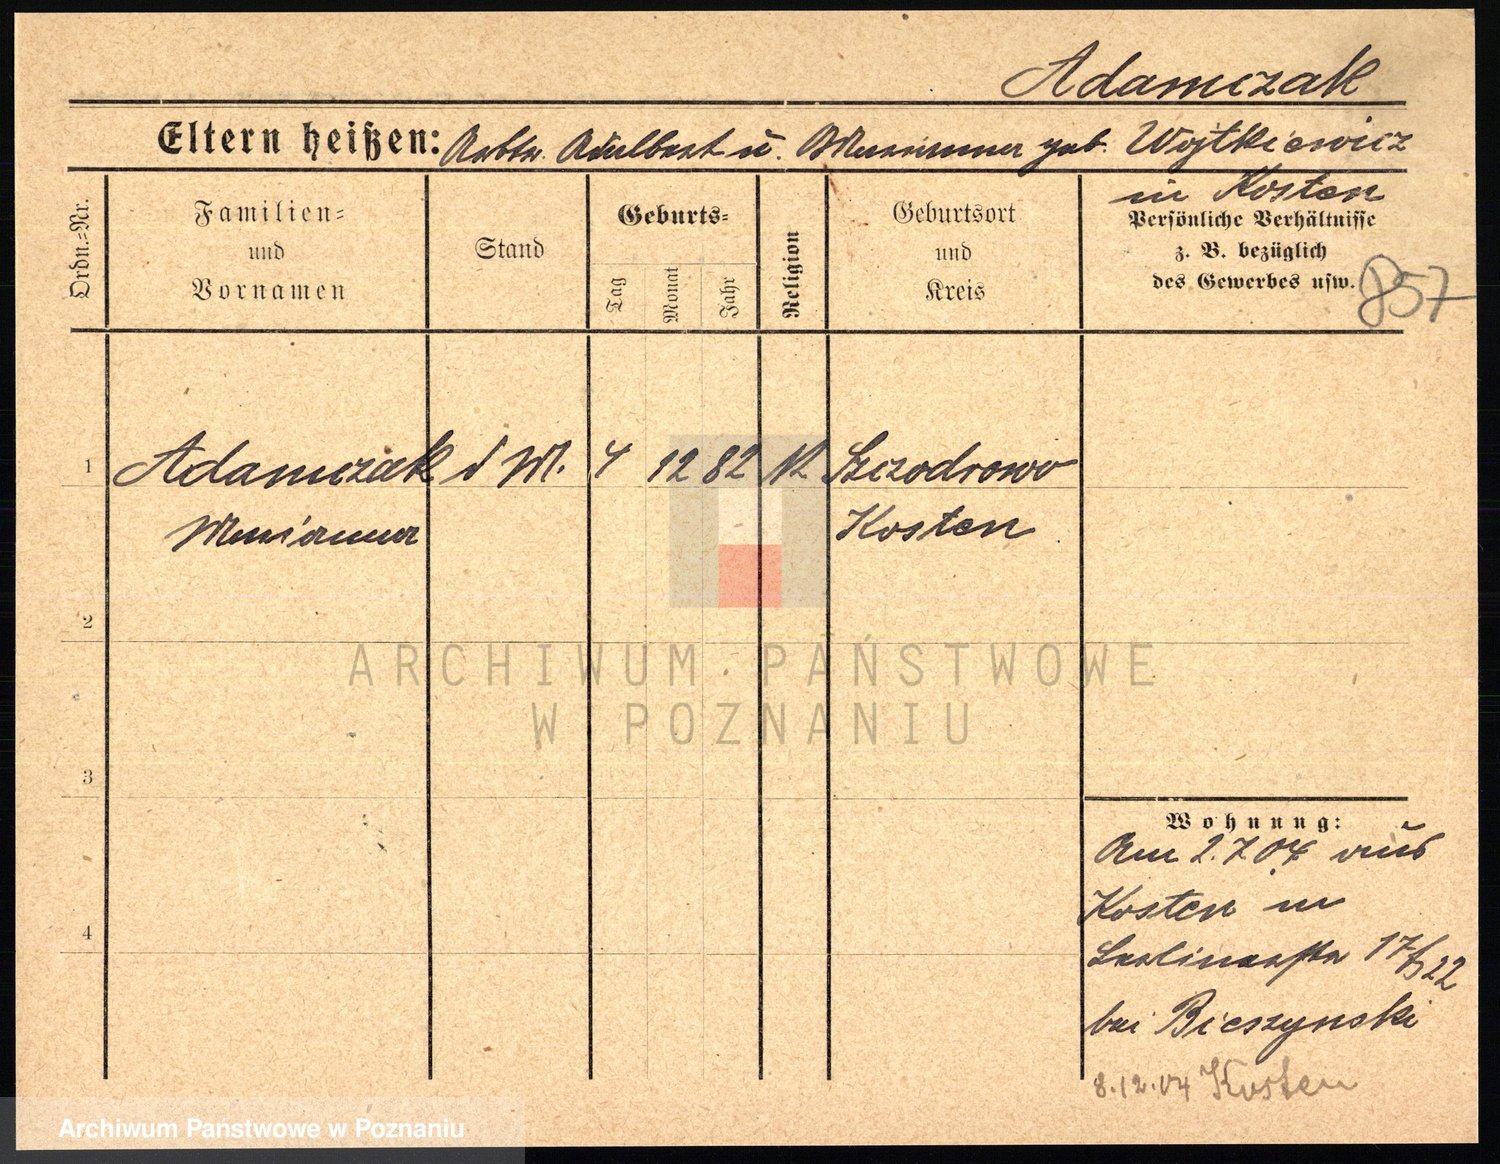 Adamczak
Eltern heißen: Arbtr. Adalbert u. Marianna geb. Wojtkiewicz
in Kosten
Ordn.=Nr.
Familien=
und
Vornamen
Stand
Geburts=
Tag
Monat
Jahr
Religion
Geburtsort
und
Kreis
Persönliche Verhältnisse
z. B. bezüglich
des Gewerbes usw.
857
1 Adamczak d M. 4 12 82 K Szczodrowo
Marianna Kosten
2
3
4
Wohnung:
Am 2.7 04 aus
Kosten in
Berlinerstr 17/22
bei Bieszynski
8.12.04 Kosten
ARCHIWUM PAŃSTWOWE
W POZNANIU
Archiwum Państwowe w Poznaniu